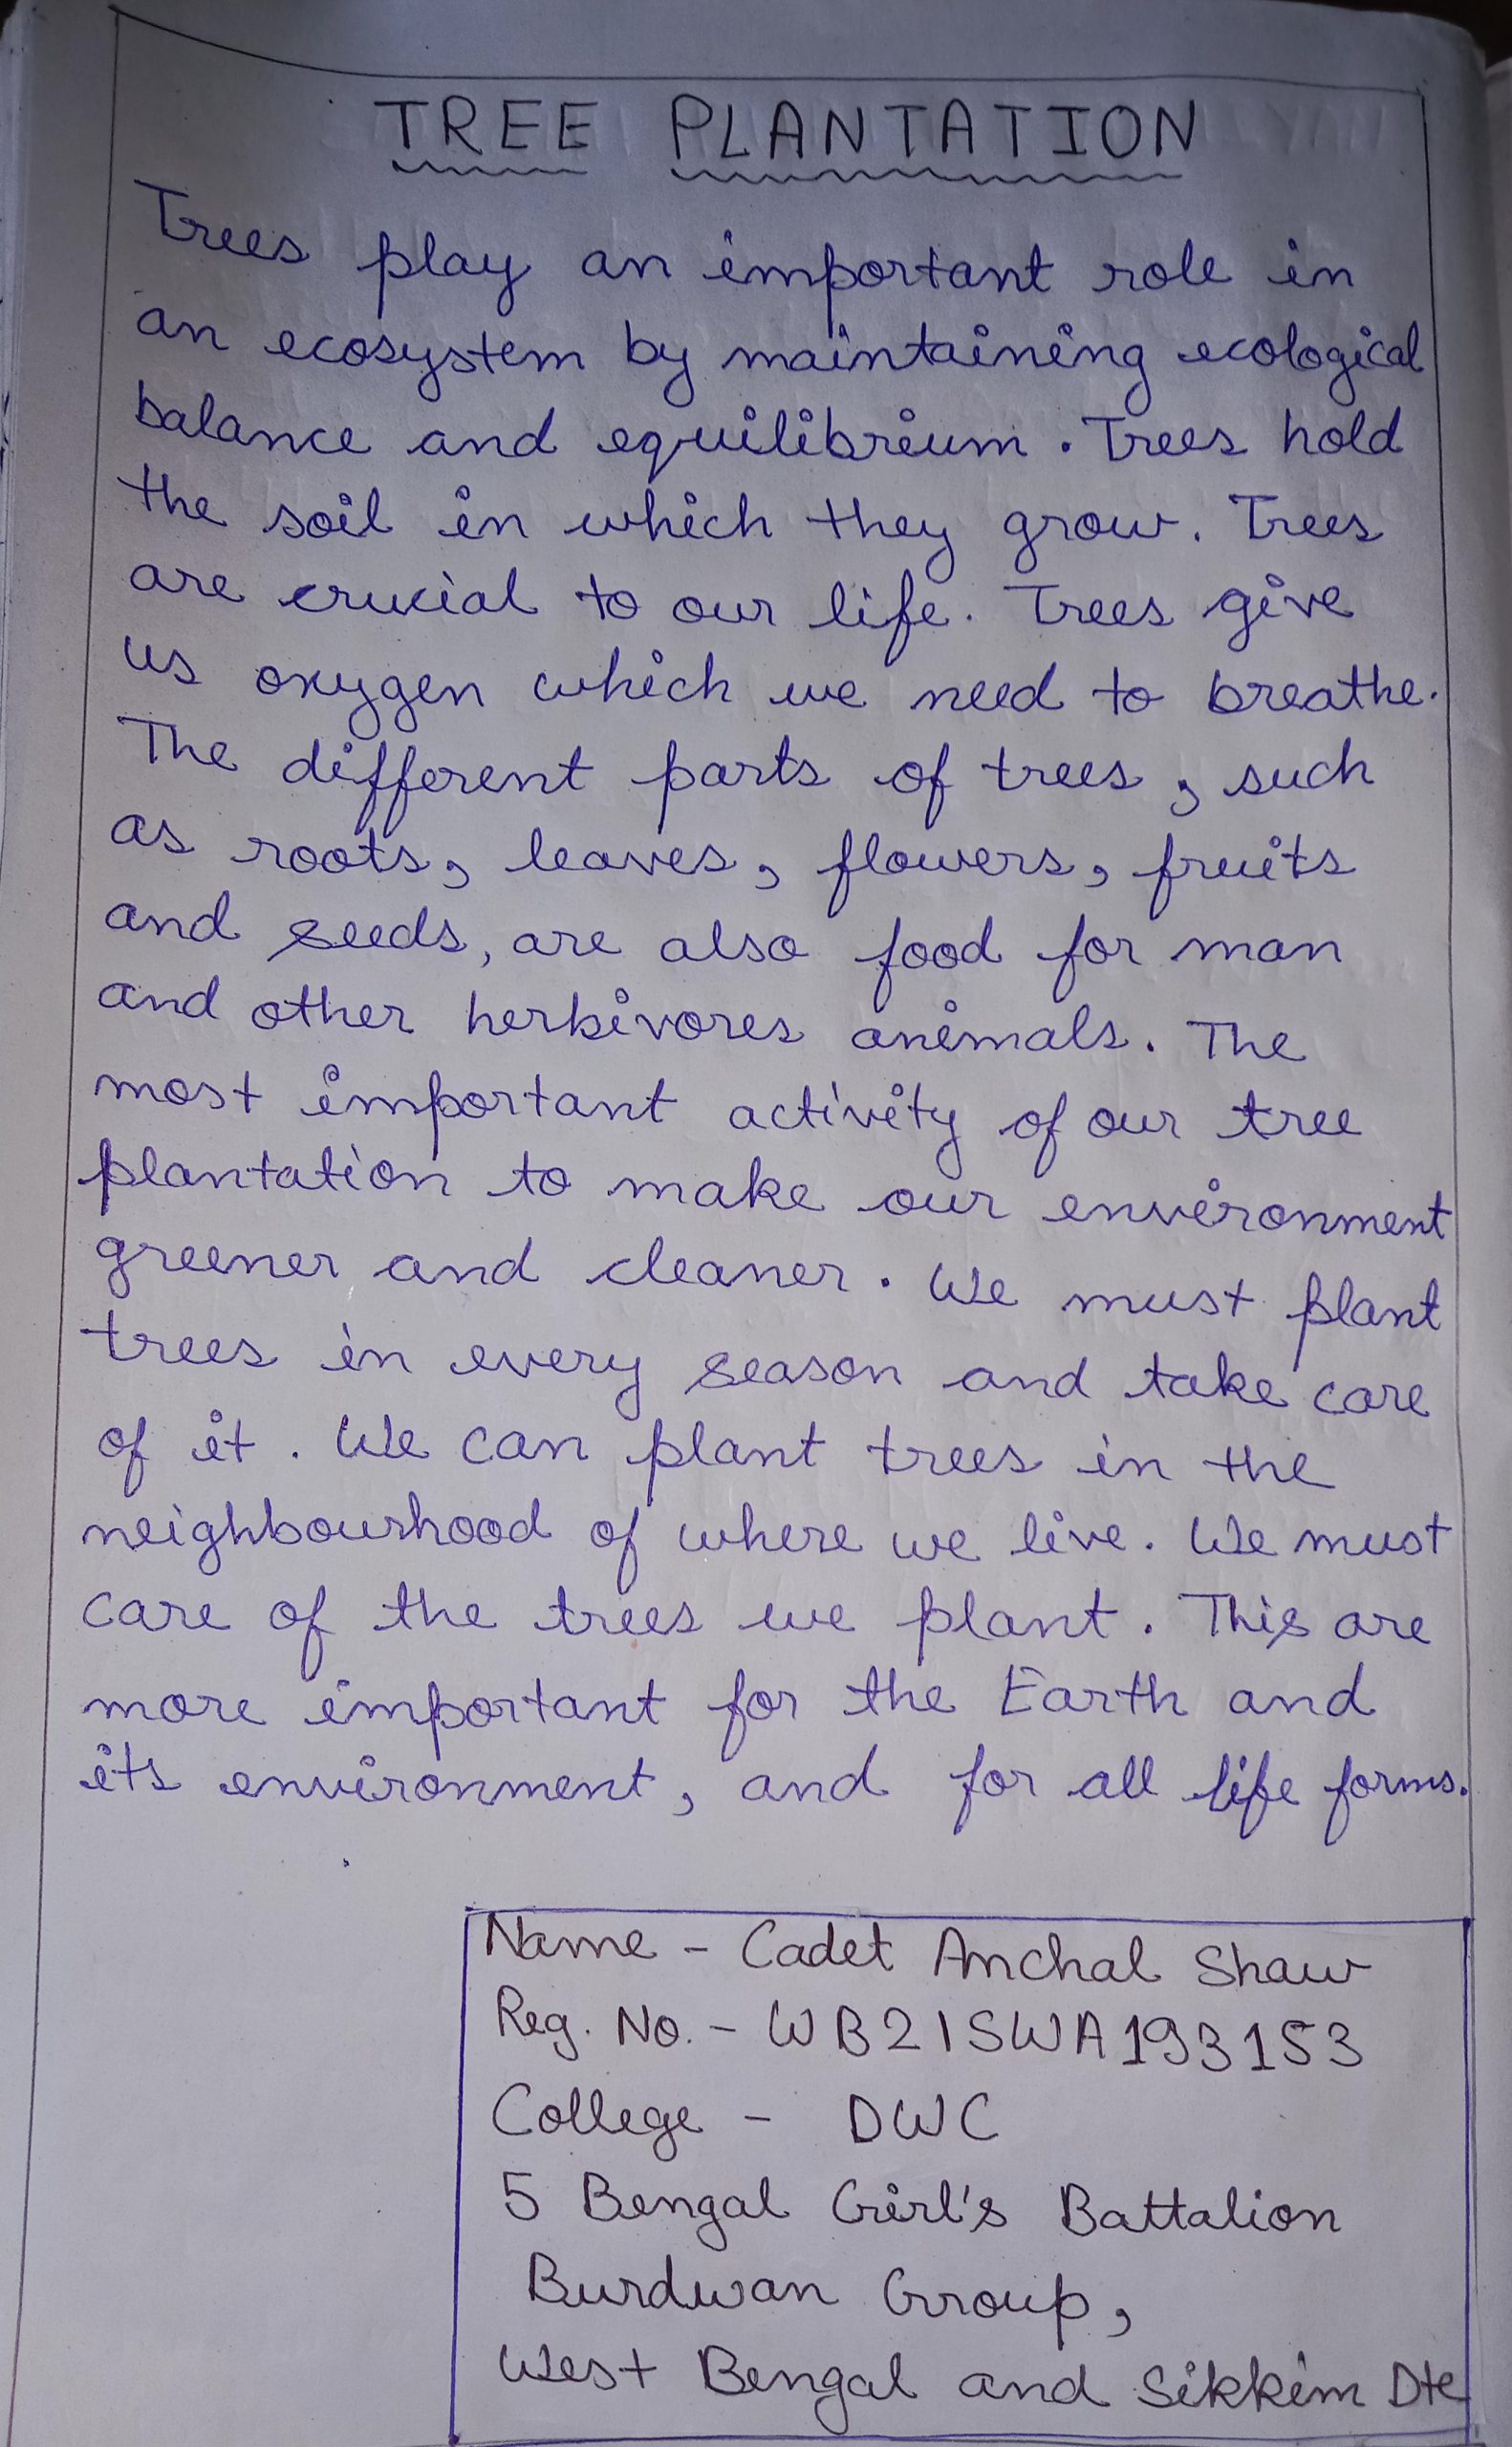 TREE PLANTATION
Trees play an important role in
an ecosystem by maintaining ecological
balance and equilibrium. Trees hold
the soil in which they grow. Trees
are crucial to our life. Trees give
us oxygen which we need to breathe.
The different parts of trees, such
as roots, leaves, flowers, fruits
and seeds, are also food for man
and other herbivores animals. The
most important activity of our tree
plantation to make our environment
greener and cleaner. We must plant
trees in every season and take care
of it. We can plant trees in the
neighbourhood of where we live. We must
care of the trees we plant. This are
more important for the Earth and
its environment, and for all life forms.
Name - Cadet Anchal Shaw
Reg. No. - WB21SWA193153
College - DWC
5 Bengal Girl's Battalion
Burdwan Group,
West Bengal and Sikkim Dte